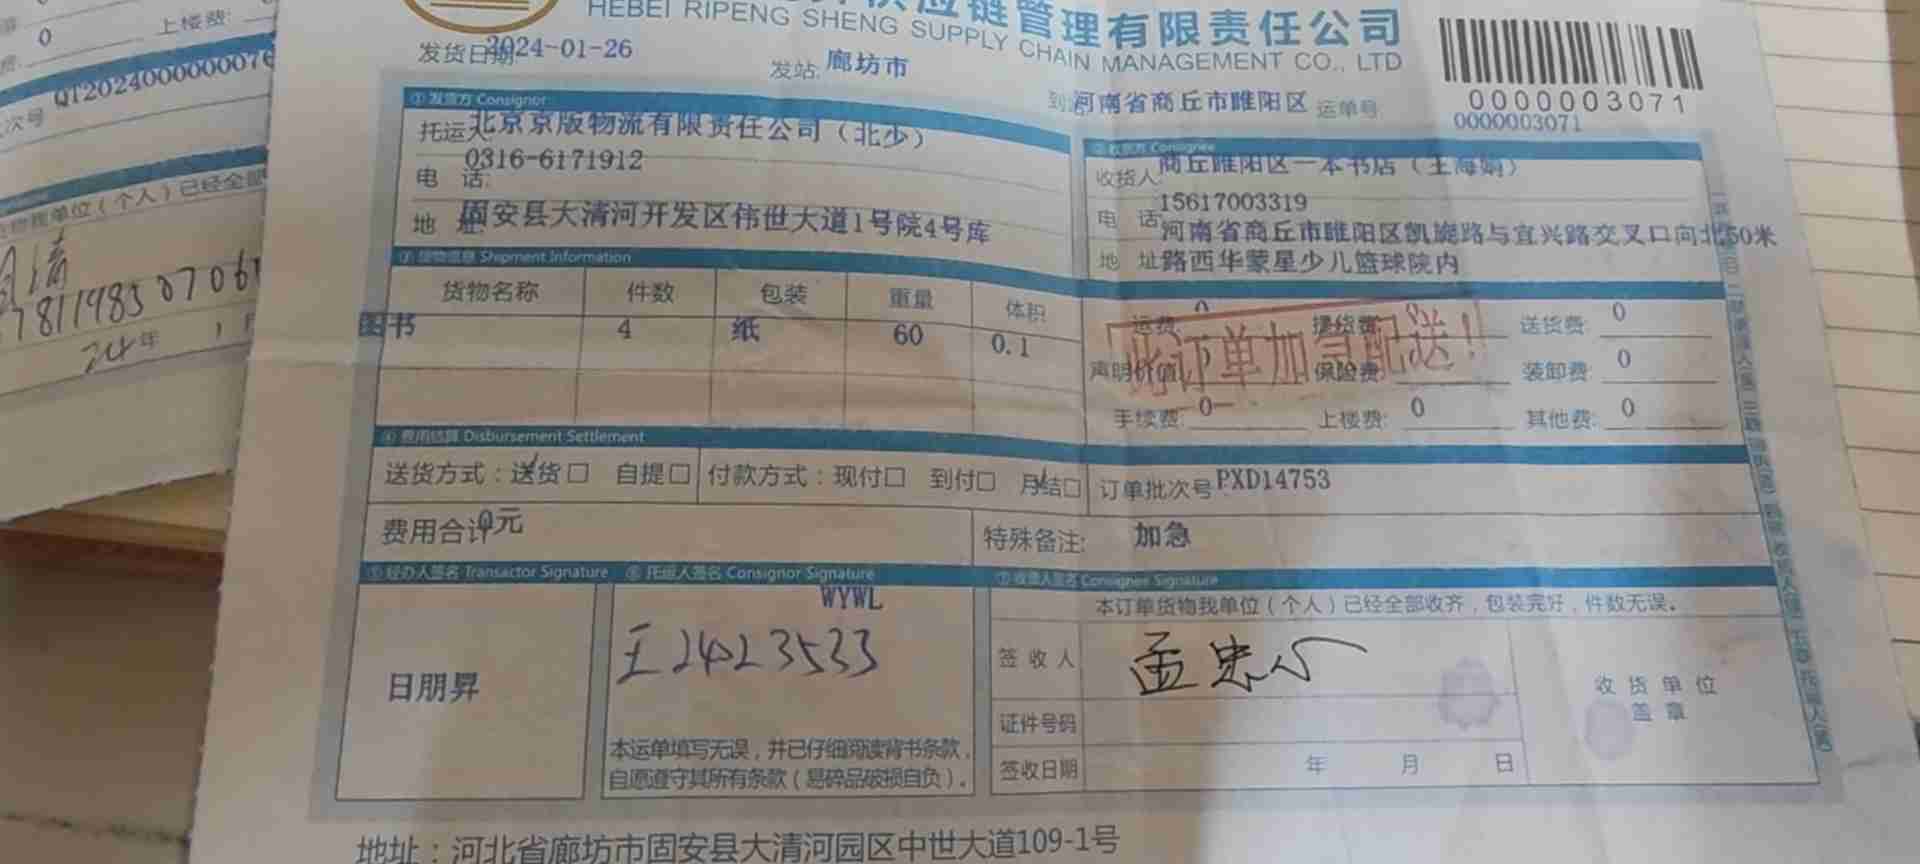 上楼费:
0
次号 QT2024000000076
物我单位（个人）已经全部
24年 1月
供应链管理有限责任公司
HEBEI RIPENG SHENG SUPPLY CHAIN MANAGEMENT CO., LTD
发货日期 2024-01-26
发站: 廊坊市
到站 河南省商丘市睢阳区 运单号
0000003071
0000003071
① 发货方 Consignor
托运人 北京京版物流有限责任公司（北少）
电 话: 0316-6171912
地 址 固安县大清河开发区伟世大道1号院4号库
② 收货方 Consignee
收货人 商丘睢阳区一本书店（王海娟）
电 话 15617003319
地 址 河南省商丘市睢阳区凯旋路与宜兴路交叉口向北50米
路西华蒙星少儿篮球院内
③ 货物信息 Shipment Information
货物名称 件数 包装 重量 体积
图书 4 纸 60 0.1
运费: 0 提货费: 0 送货费: 0
此订单加急配送!
声明价值 保险费: 装卸费: 0
手续费: 0 上楼费: 0 其他费: 0
④ 费用结算 Disbursement Settlement
送货方式：送货□ 自提□ 付款方式：现付□ 到付□ 月结□ 订单批次号 PXD14753
费用合计 0元 特殊备注: 加急
⑤ 经办人签名 Transactor Signature ⑥ 托运人签名 Consignor Signature ⑦ 收货人签名 Consignee Signature
WYWL
本订单货物我单位（个人）已经全部收齐，包装完好，件数无误。
王2423533
日朋昇
签收人
证件号码
签收日期 年 月 日
收货单位
盖章
本运单填写无误，并已仔细阅读背书条款，
自愿遵守其所有条款（易碎品破损自负）。
地址：河北省廊坊市固安县大清河园区中世大道109-1号